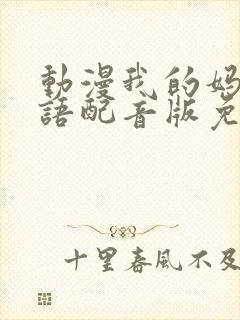 動漫我的媽
語配音版免
十里春風不及